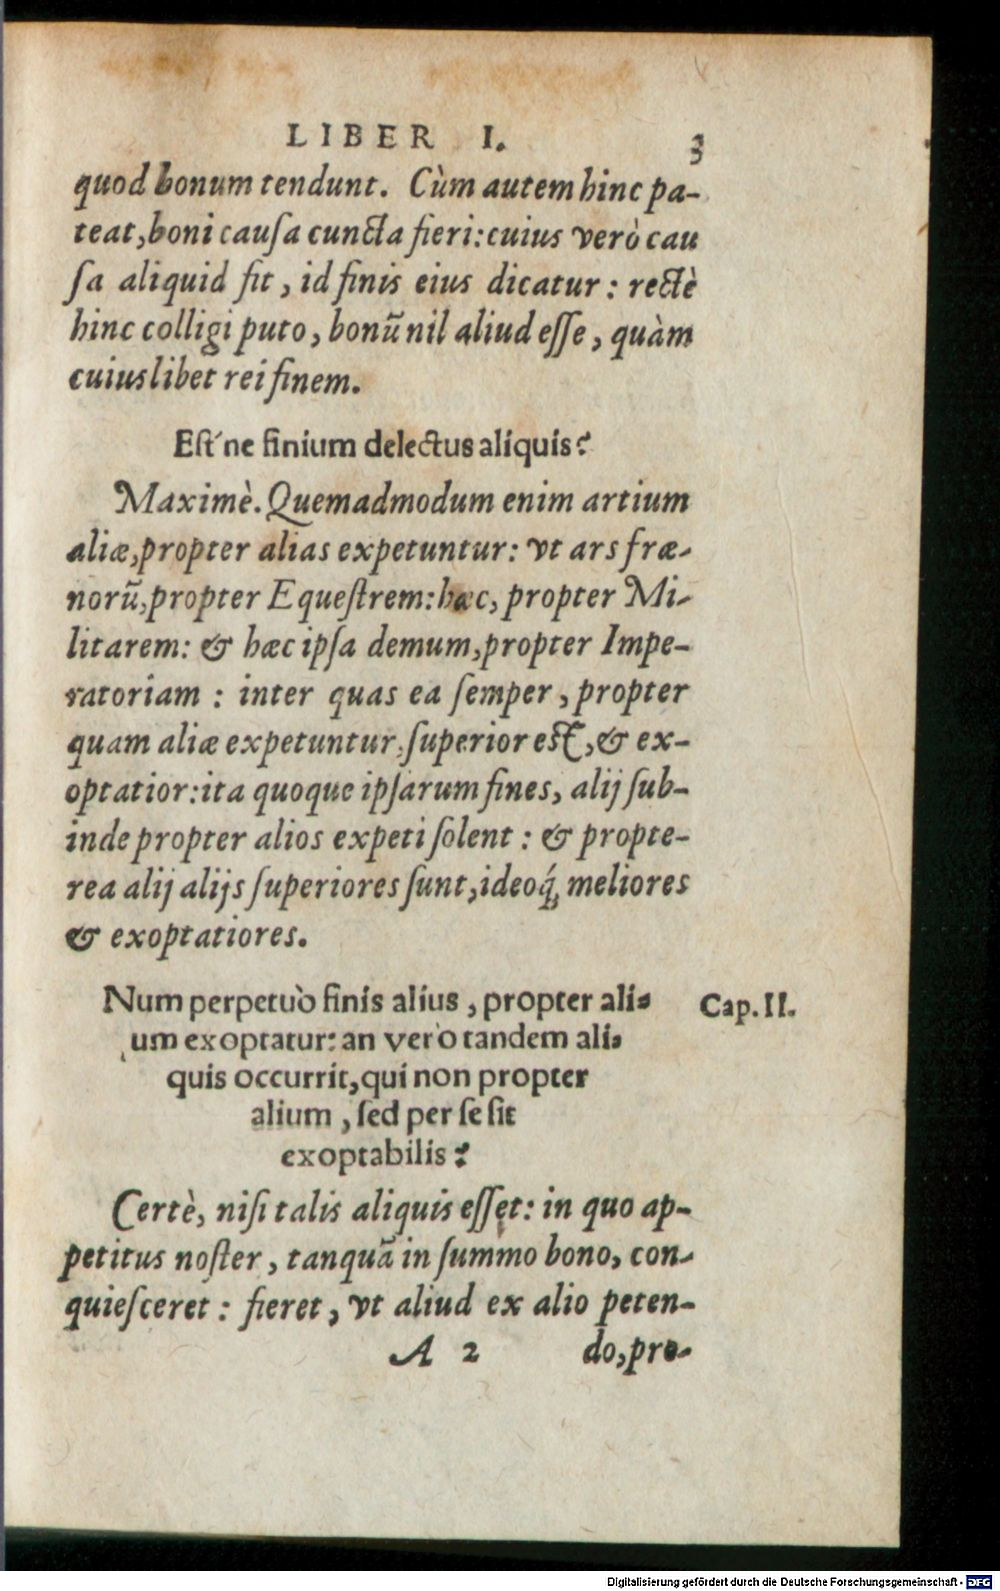 LIBER I. 3
quod bonum tendunt. Cùm autem hinc pa-
teat, boni cauſa cuncta fieri: cuius verò cau
ſa aliquid fit, id finis eius dicatur: rectè
hinc colligi puto, bonũ nil aliud eſſe, quàm
cuiuslibet rei finem.
Eſt'ne finium delectus aliquis?
Maximè. Quemadmodum enim artium
aliæ, propter alias expetuntur: vt ars fræ-
norũ, propter Equeſtrem: hæc, propter Mi-
litarem: & hæc ipſa demum, propter Impe-
ratoriam: inter quas ea ſemper, propter
quam aliæ expetuntur, ſuperior est, & ex-
optatior: ita quoque ipſarum fines, alij ſub-
inde propter alios expeti ſolent: & propte-
rea alij alijs ſuperiores ſunt, ideoq́; meliores
& exoptatiores.
Num perpetuò finis alius, propter ali- Cap. II.
um exoptatur: an verò tandem ali-
quis occurrit, qui non propter
alium, ſed per ſe ſit
exoptabilis?
Certè, niſi talis aliquis eſſet: in quo ap-
petitus noſter, tanquã in ſummo bono, con-
quieſceret: fieret, vt aliud ex alio peten-
A 2 do, pro-
Digitalisierung gefördert durch die Deutsche Forschungsgemeinschaft - DFG